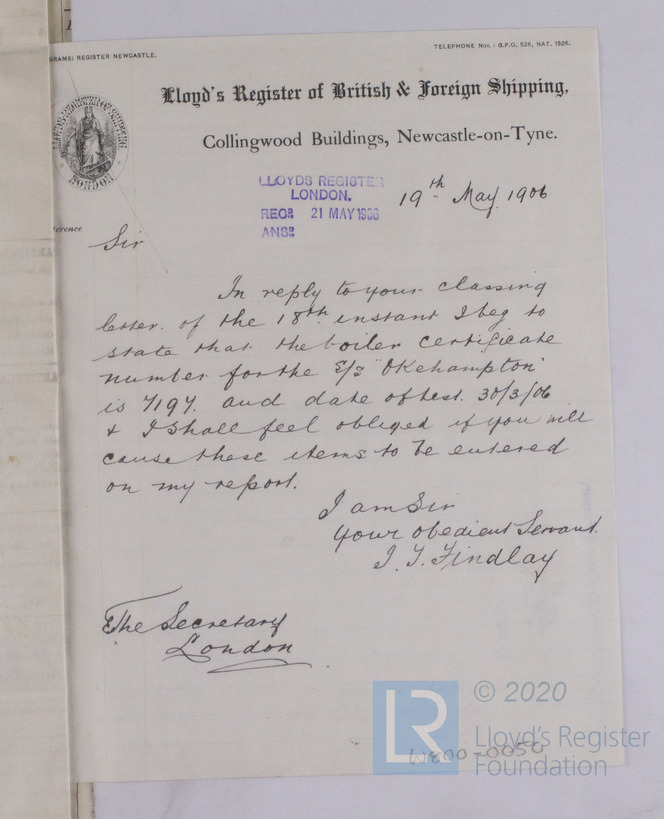 GRAMS: REGISTER NEWCASTLE.
TELEPHONE Nos.: G.P.O. 526, NAT. 1526.
Lloyd's Register of British & Foreign Shipping,
Collingwood Buildings, Newcastle-on-Tyne.
LONDON
LLOYDS REGISTER
LONDON.
RECD. 21 MAY 1906
ANSD.
19th May 1906
erence
Sir
In reply to your classing
letter of the 18th instant I beg to
state that the boiler certificate
number for the S/S "Okehampton"
is 7197. and date of test. 30/3/06
& I shall feel obliged if you will
cause these items to be entered
on my report.
I am Sir
Your obedient Servant.
J. T. Findlay
The Secretary
London
W800-0050
LR
© 2020
Lloyd's Register
Foundation